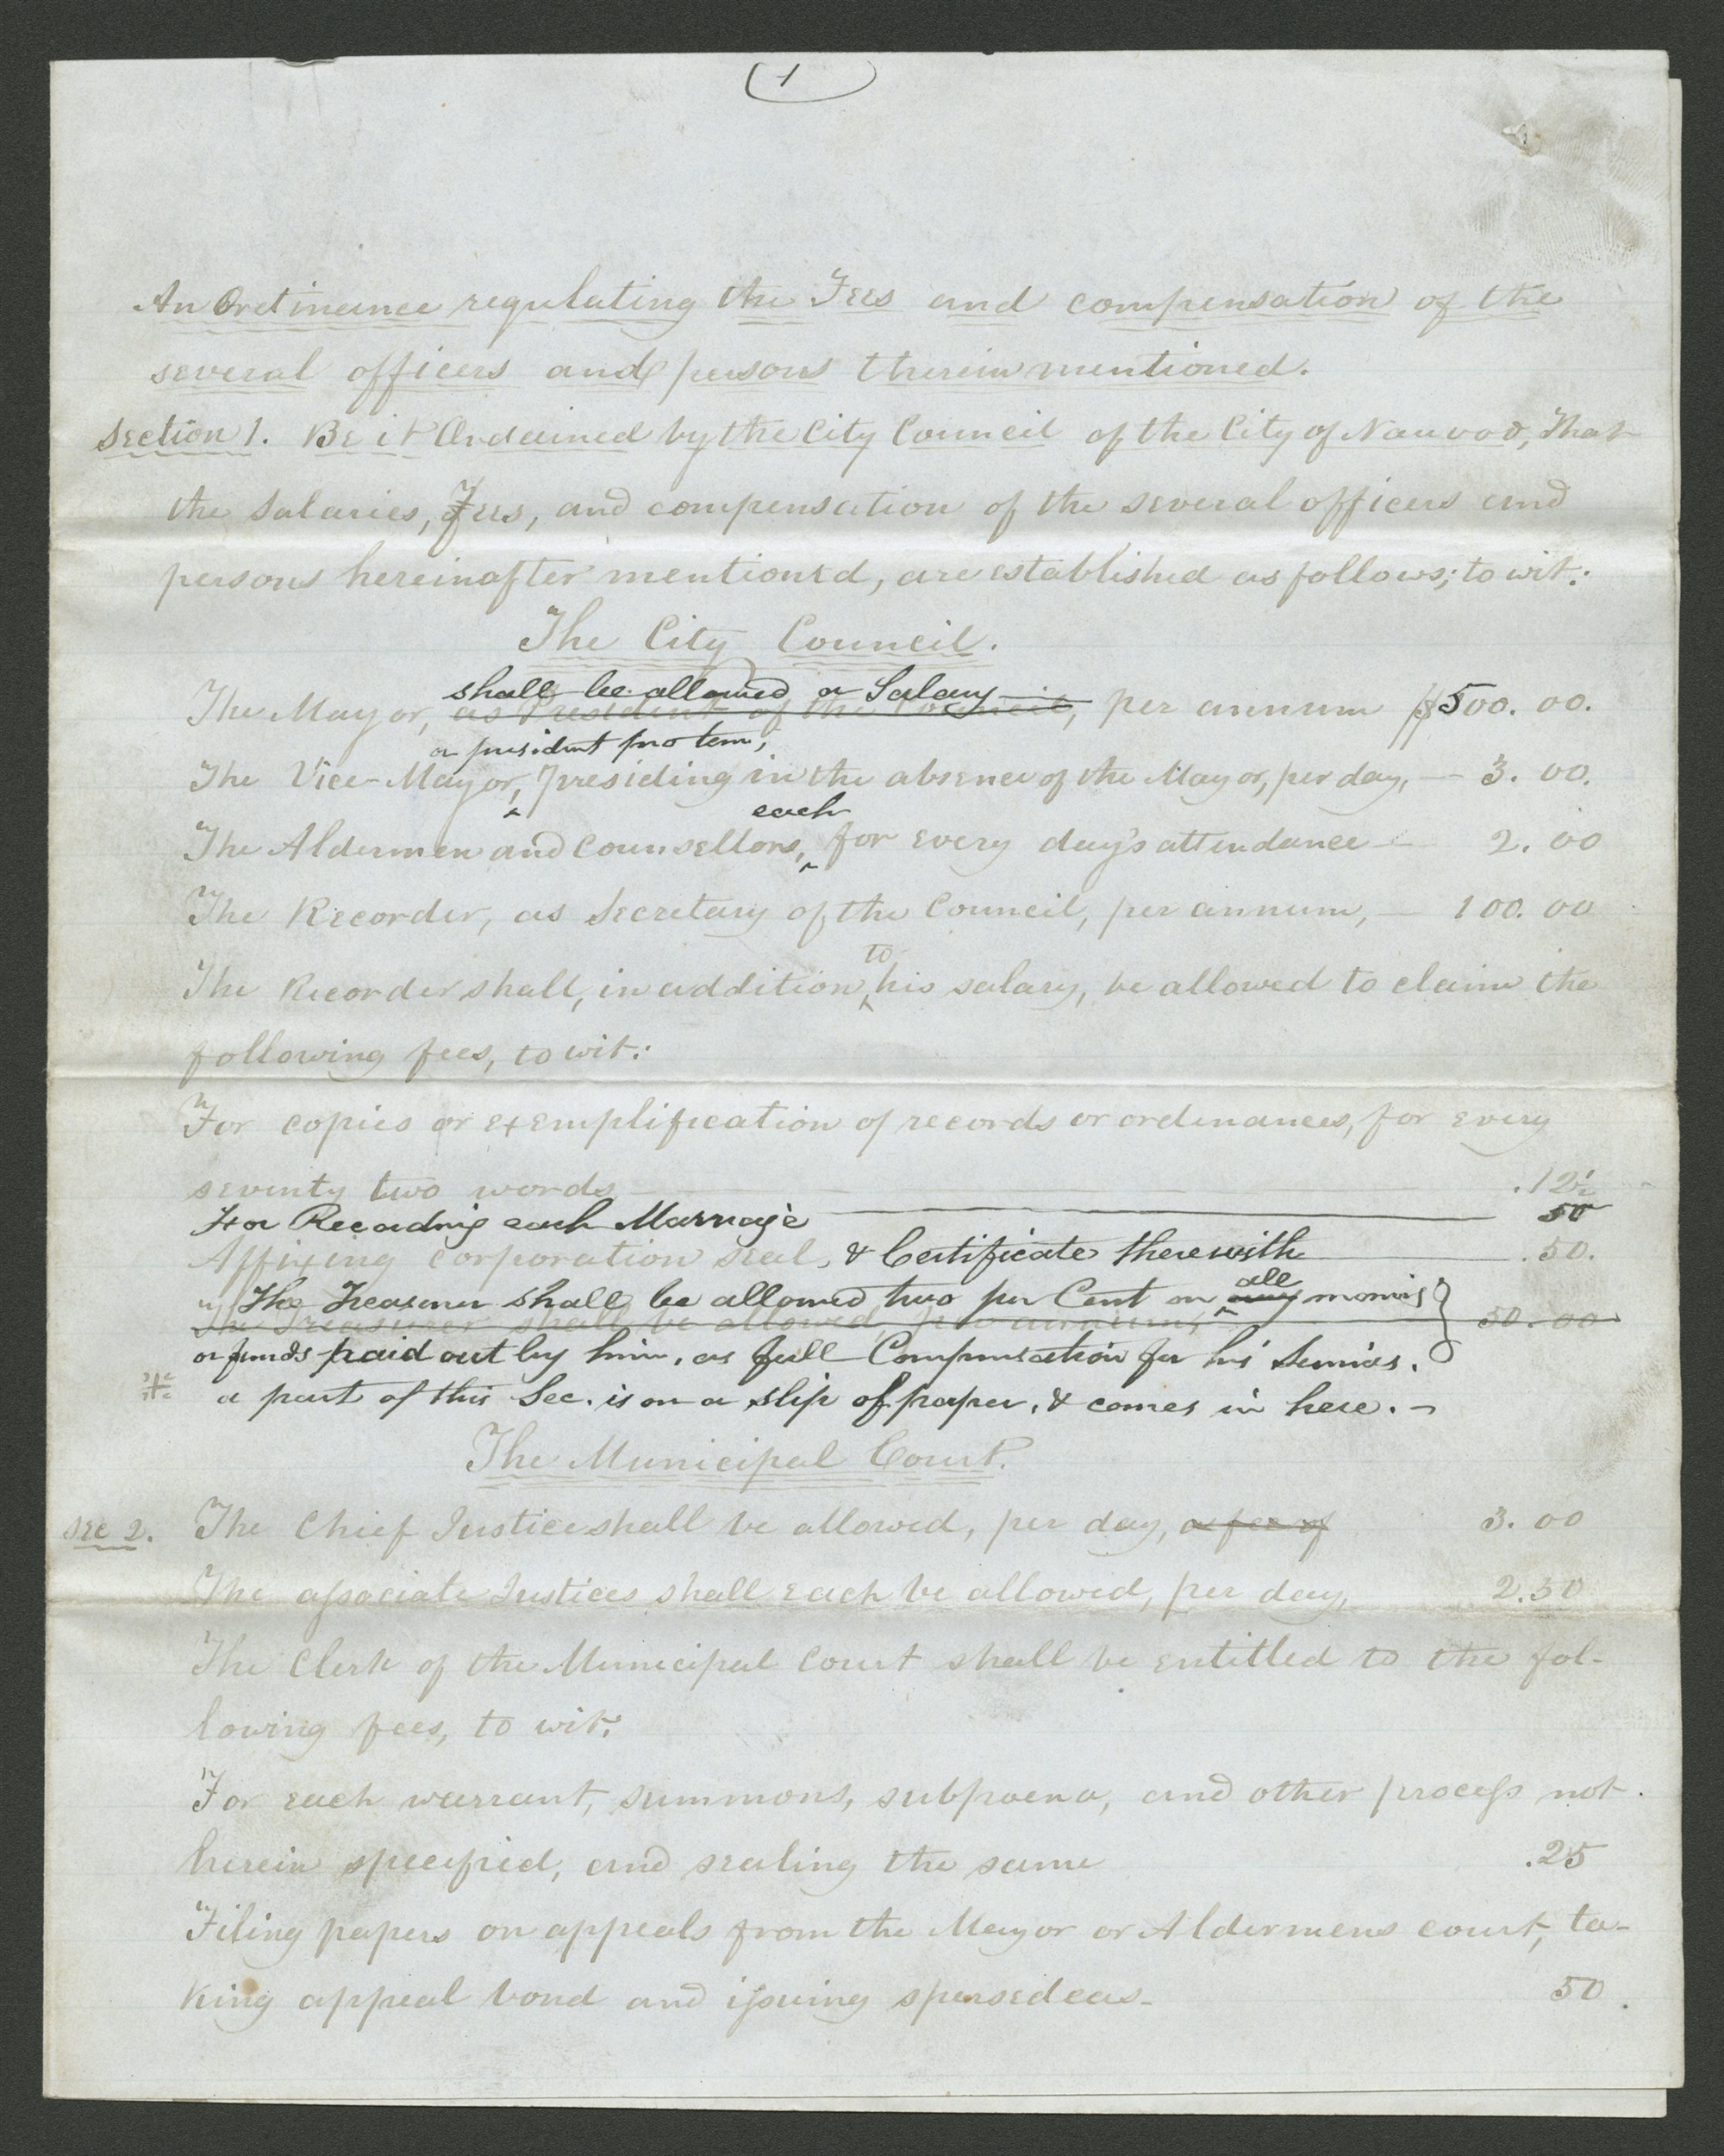 1
An Ordinance regulating the Fees and compensation of the
several officers and persons therein mentioned.
Section 1. Be it Ordained by the City Council of the City of Nauvoo, That
the Salaries, Fees, and compensation of the several officers and
persons hereinafter mentioned, are established as follows; to wit:
The City Council.
shall be allowed a Salary
The Mayor, as President of the Council, per annum $500.00.
or president pro tem,
The Vice-Mayor, presiding in the absence of the Mayor, per day, — 3.00.
each
The Aldermen and Counsellors, for every day's attendance — 2.00
The Recorder, as Secretary of the Council, per annum, — 100.00
to
The Recorder shall, in addition his salary, be allowed to claim the
following fees, to wit:
For copies or exemplification of records or ordinances, for every
seventy two words .12½
For Recording each Marriage 50
Affixing corporation seal, & Certificate therewith .50.
all
The Treasurer shall be allowed two per Cent on any monies
The Treasurer shall be allowed, per annum, 50.00
or funds paid out by him, as full Compensation for his Services.
a part of this Sec. is on a slip of paper, & comes in here. —
The Municipal Court.
Sec 2. The Chief Justice shall be allowed, per day, a fee of 3.00
The associate Justices shall each be allowed, per day, 2.50
The Clerk of the Municipal Court shall be entitled to the fol-
lowing fees, to wit:
For each warrant, summons, subpoena, and other process not
herein specified, and sealing the same .25
Filing papers on appeals from the Mayor or Aldermens court, ta-
king appeal bond and issuing spersedeas- 50.